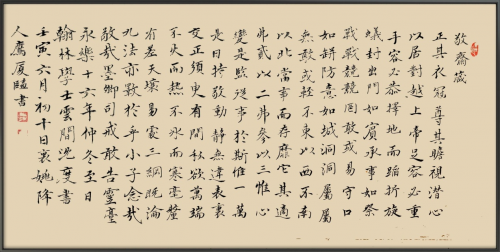 敬齋箴
正其衣冠尊其瞻視潛心
以居對越上帝足容必重
手容必恭擇地而蹈折旋
蟻封出門如賓承事如祭
戰戰兢兢罔敢或易守口
如缾防意如城洞洞屬屬
無敢或輕不東以西不南
以北當事而存靡它其適
弗貳以二弗參以三惟心
變是監從事於斯惟一萬
是曰持敬動靜無違表裏
交正須臾有間私欲萬端
不火而熱不冰而寒毫釐
有差天壤易處三綱既淪
九法亦斁於乎小子念哉
敬哉墨卿司戒敢告靈臺
永樂十六年仲冬至日
翰林學士雲間沈度書
壬寅六月初十日
人鷹厦臨書